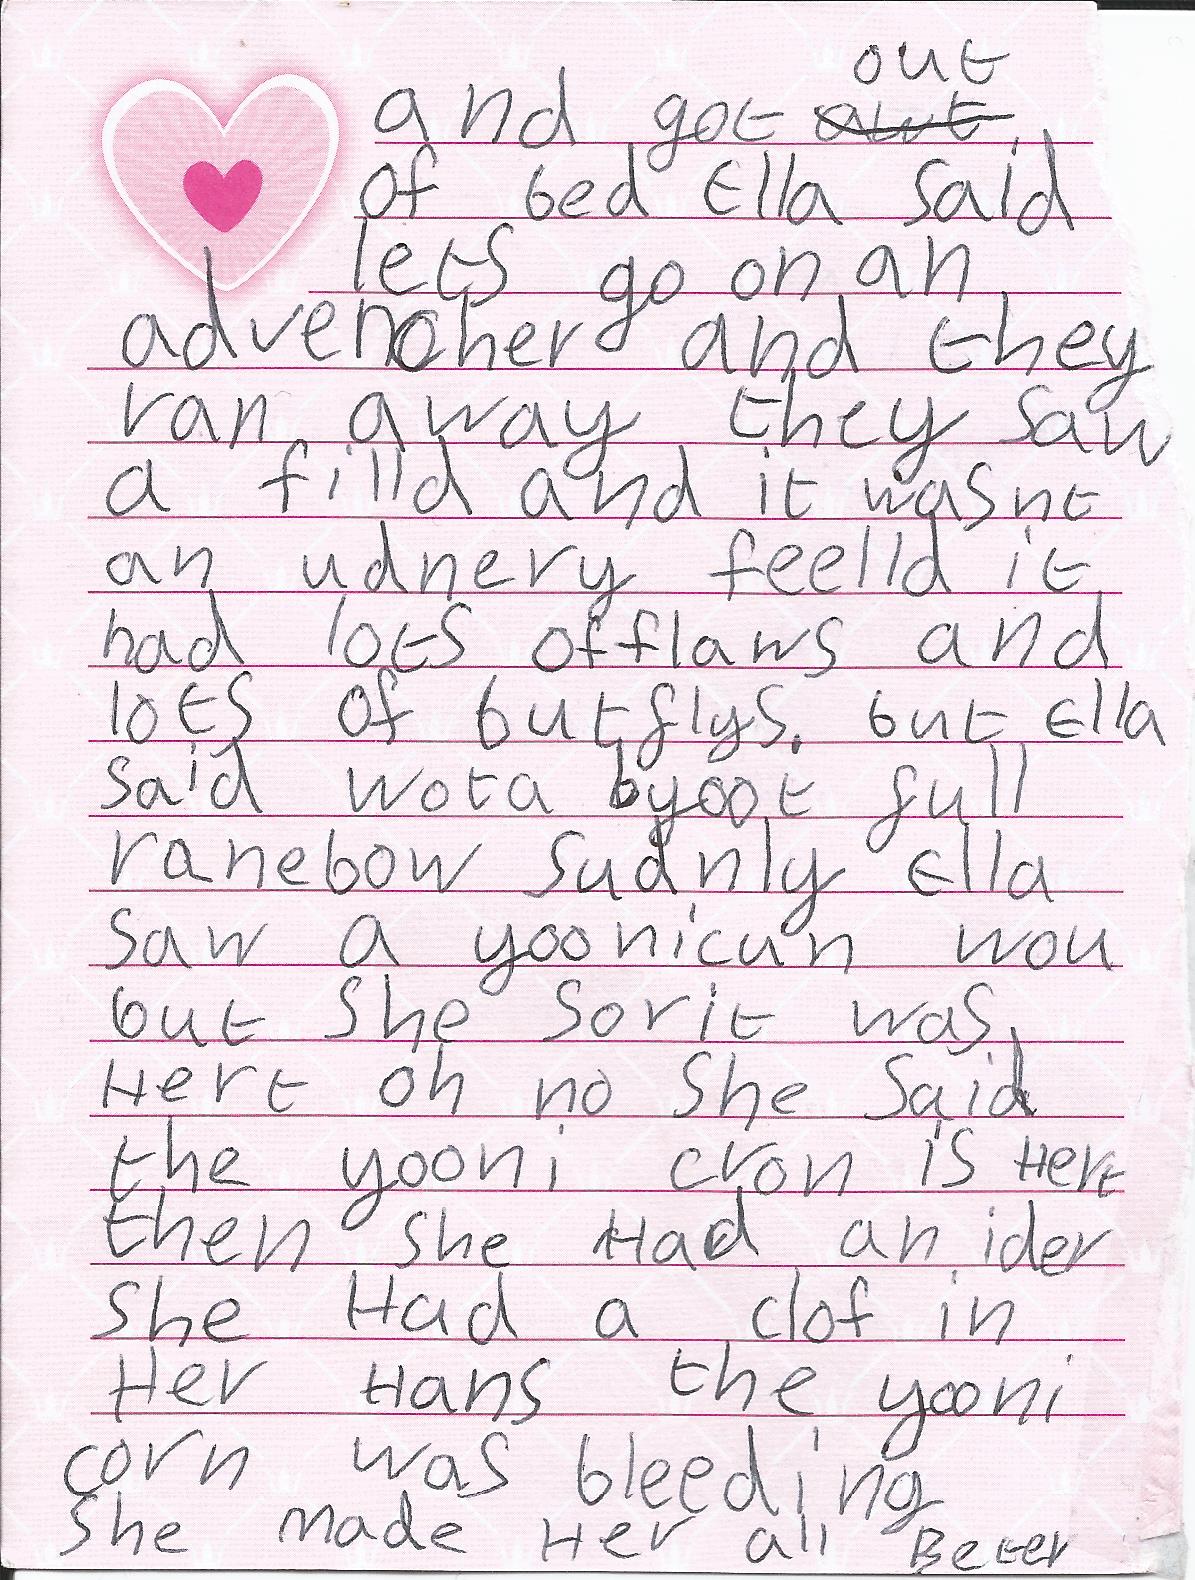 out
and got awt
of bed Ella said
lets go on an
advencher and they
ran away they saw
a filld and it wasnt
an udnery feelld it
had lots of flaws and
lots of butflys. but Ella
said wota byoot full
ranebow sudnly Ella
saw a yoonicun wou
but she sor it was
Hert oh no she said
the yooni cron is Hert
then she Had an ider
she Had a clof in
Her Hans the yooni
corn was bleeding
she made Her all Beter